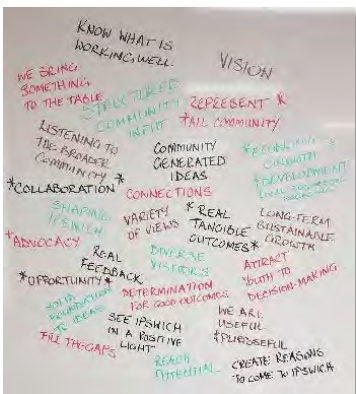 KNOW WHAT IS
WORKING WELL
VISION
WE BRING
SOMETHING
TO THE TABLE
STRUCTURED
COMMUNITY
INPUT
REPRESENT *
*ALL COMMUNITY
LISTENING TO
THE BROADER
COMMUNITY
COMMUNITY
GENERATED
IDEAS
*ECONOMIC
GROWTH
*DEVELOPMENT
*COLLABORATION*
CONNECTIONS
SHAPING
IPSWICH
VARIETY
OF VIEWS
* REAL
TANGIBLE
OUTCOMES*
LONG-TERM
SUSTAINABLE
GROWTH
*ADVOCACY
REAL
FEEDBACK
DIVERSE
ATTRACT
YOUTH TO
DECISION-MAKING
*OPPORTUNITY*
DETERMINATION
FOR GOOD OUTCOMES
SOLID
FOUNDATION
IDEAS
SEE IPSWICH
IN A POSITIVE
LIGHT
WE ARE
USEFUL
FILL THE GAPS
REACH
POTENTIAL
CREATE REASONS
TO COME TO IPSWICH